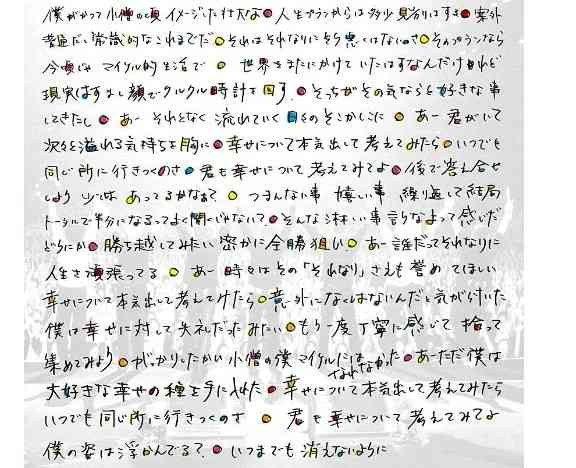 僕がかつて小僧の頃イメージした壮大な 人生プランからは多少見劣りはするよ 案外
普通だし常識的なこれまでだ それはそれなりにそう悪くはないのさ そのプランなら
今頃じゃ マイケル的生活で 世界をまたにかけていたはずなんだけれど
現実はすまし顔でクルクル時計を回す. そっちがその気ならと好きな事
してきたし あー それとなく 流れていく日々のそこかしこに あー 君がいて
次々と溢れる気持ちを胸に 幸せについて本気出して考えてみたら いつでも
同じ所に行きつくのさ 君も幸せについて考えてみてよ 後で答え合せ
しよう 少しは あってるかなぁ? つまんない事 嬉しい事 繰り返して結局
トータルで半分になるってよく聞くじゃない? そんな淋しい事言うなよって感じだ
どうにか 勝ち越してみたい 密かに全勝狙い あー 誰だってそれなりに
人生を頑張ってる あー 時々はその「それなり」さえも誉めてほしい
幸せについて本気出して考えてみたら 意外になくはないんだと気が付いた
僕は幸せに対して失礼だったみたい もう一度丁寧に感じて拾って
集めてみよう がっかりしたかい小僧の僕 マイケルにはなれなかった あーただ僕は
大好きな幸せの種を手に入れた 幸せについて本気出して考えてみたら
いつでも同じ所に行きつくのさ 君も幸せについて考えてみてよ
僕の姿は浮かんでる? いつまでも 消えないように